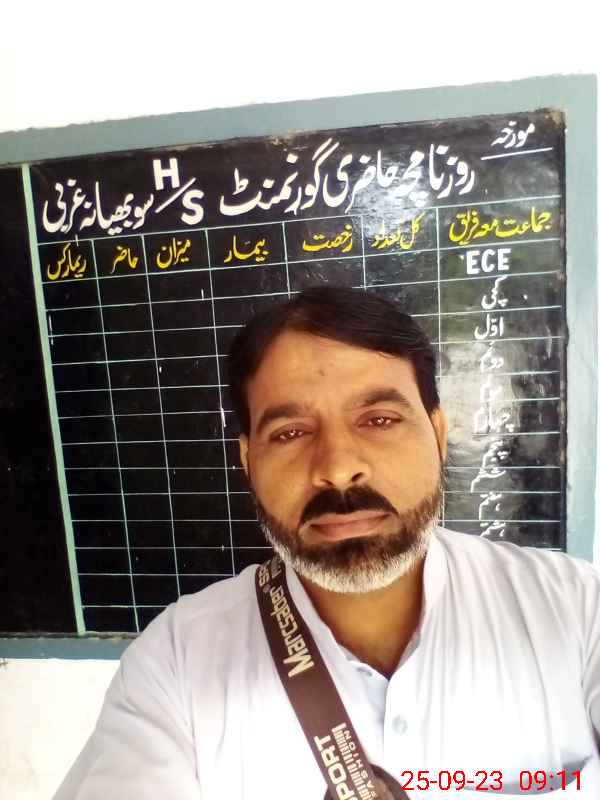 مورخہ
روزنامچہ حاضری گورنمنٹ H/S سوبھیانہ غربی
جماعت معہ فریق کل تعداد رخصت بیمار میزان حاضر ریمارکس
ECE
کچی
اوّل
دوئم
سوئم
چہارم
پنجم
ششم
ہفتم
ہشتم
Marcsaber
SPORT
FASHION
25-09-23 09:11